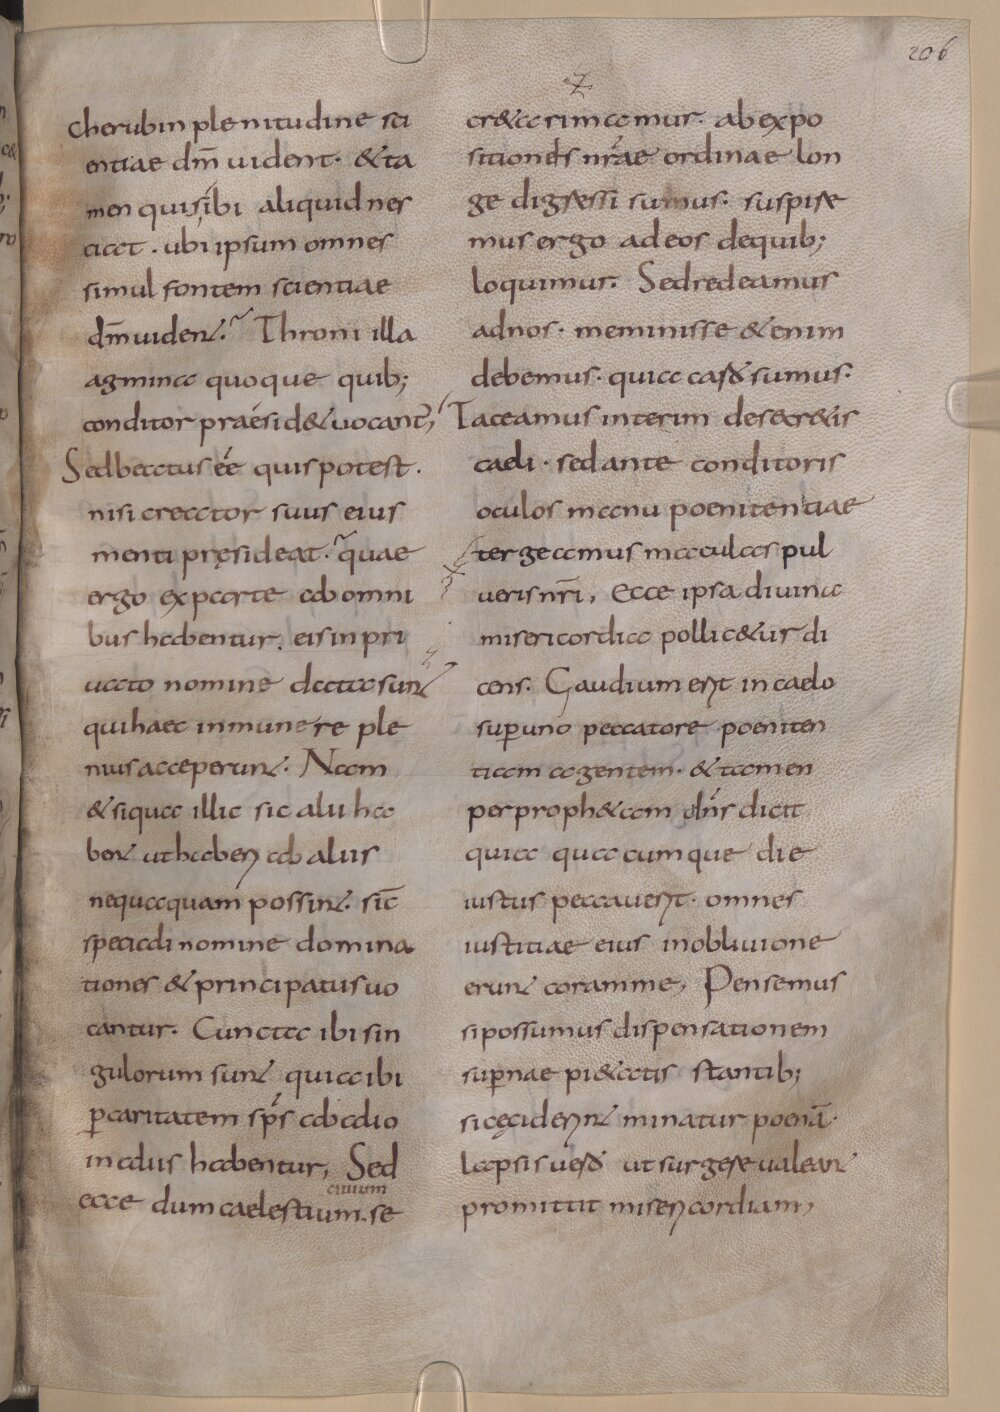 206
cherubin plenitudine sci
entiae dm̄ uident· &ta
men quis ibi aliquid nes
ciat · ubi ipsum omnes
simul fontem scientiae
dm̄ uident· Throni illa
agmina quoque quib;
conditor praesid& uocant̄,
Sed beatus éé quis potest ·
nisi creator suus eius
menti pręsideat· quae
ergo ex parte ab omni
bus habentur. eis in pri
uato nomine data sunt
qui haec in munere ple
nius acceperunt· Nam
& si qua illic sic alii ha
bent ut haberi ab aliis
nequaquam possint· sic̄
speciali nomine domina
tiones & principatus uo
cantur· Cuncta ibi sin
gulorum sunt quia ibi
p̱ caritatem sp̄s ab alio
in aliis habentur, Sed
ciuium
ecce dum caelestium · se
cr&a rimamur· ab expo
sitionis nr̄ae ordinae lon
ge digressi sumus· suspire
mus ergo ad eos de quib;
loquimur· Sed redeamus
ad nos· meminisse &enim
debemus· quia caro sumus·
Taceamus interim de secr&is
caeli · sed ante conditoris
oculos manu poenitentiae
tergeamus maculas pul
ueris nr̄i, Ecce ipsa diuina
misericordia pollic&ur di
cens· Gaudium erit in caelo
sup̱ uno peccatore poeniten
tiam agentem· & tamen
per proph&am dn̄s dicit
quia quacumque die
iustus peccauerit· omnes
iustitiae eius in obliuione
erunt coram me, Pensemus
si possumus dispensationem
sup̱nae pi&atis stantib;
si cęciderint minatur poenā·
Lapsis uero ut surgere ualeant
promittit misericordiam,